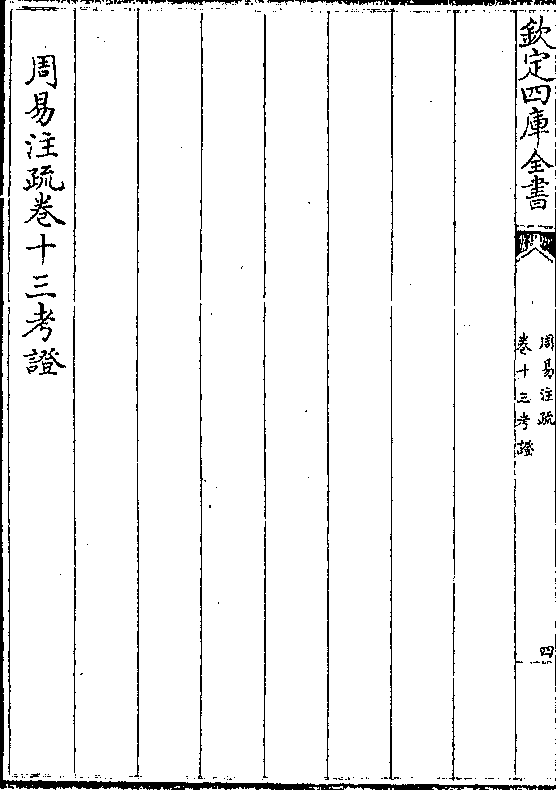 欽定四庫全書
周易注疏
卷十三考證
四
周易注疏卷十三考證